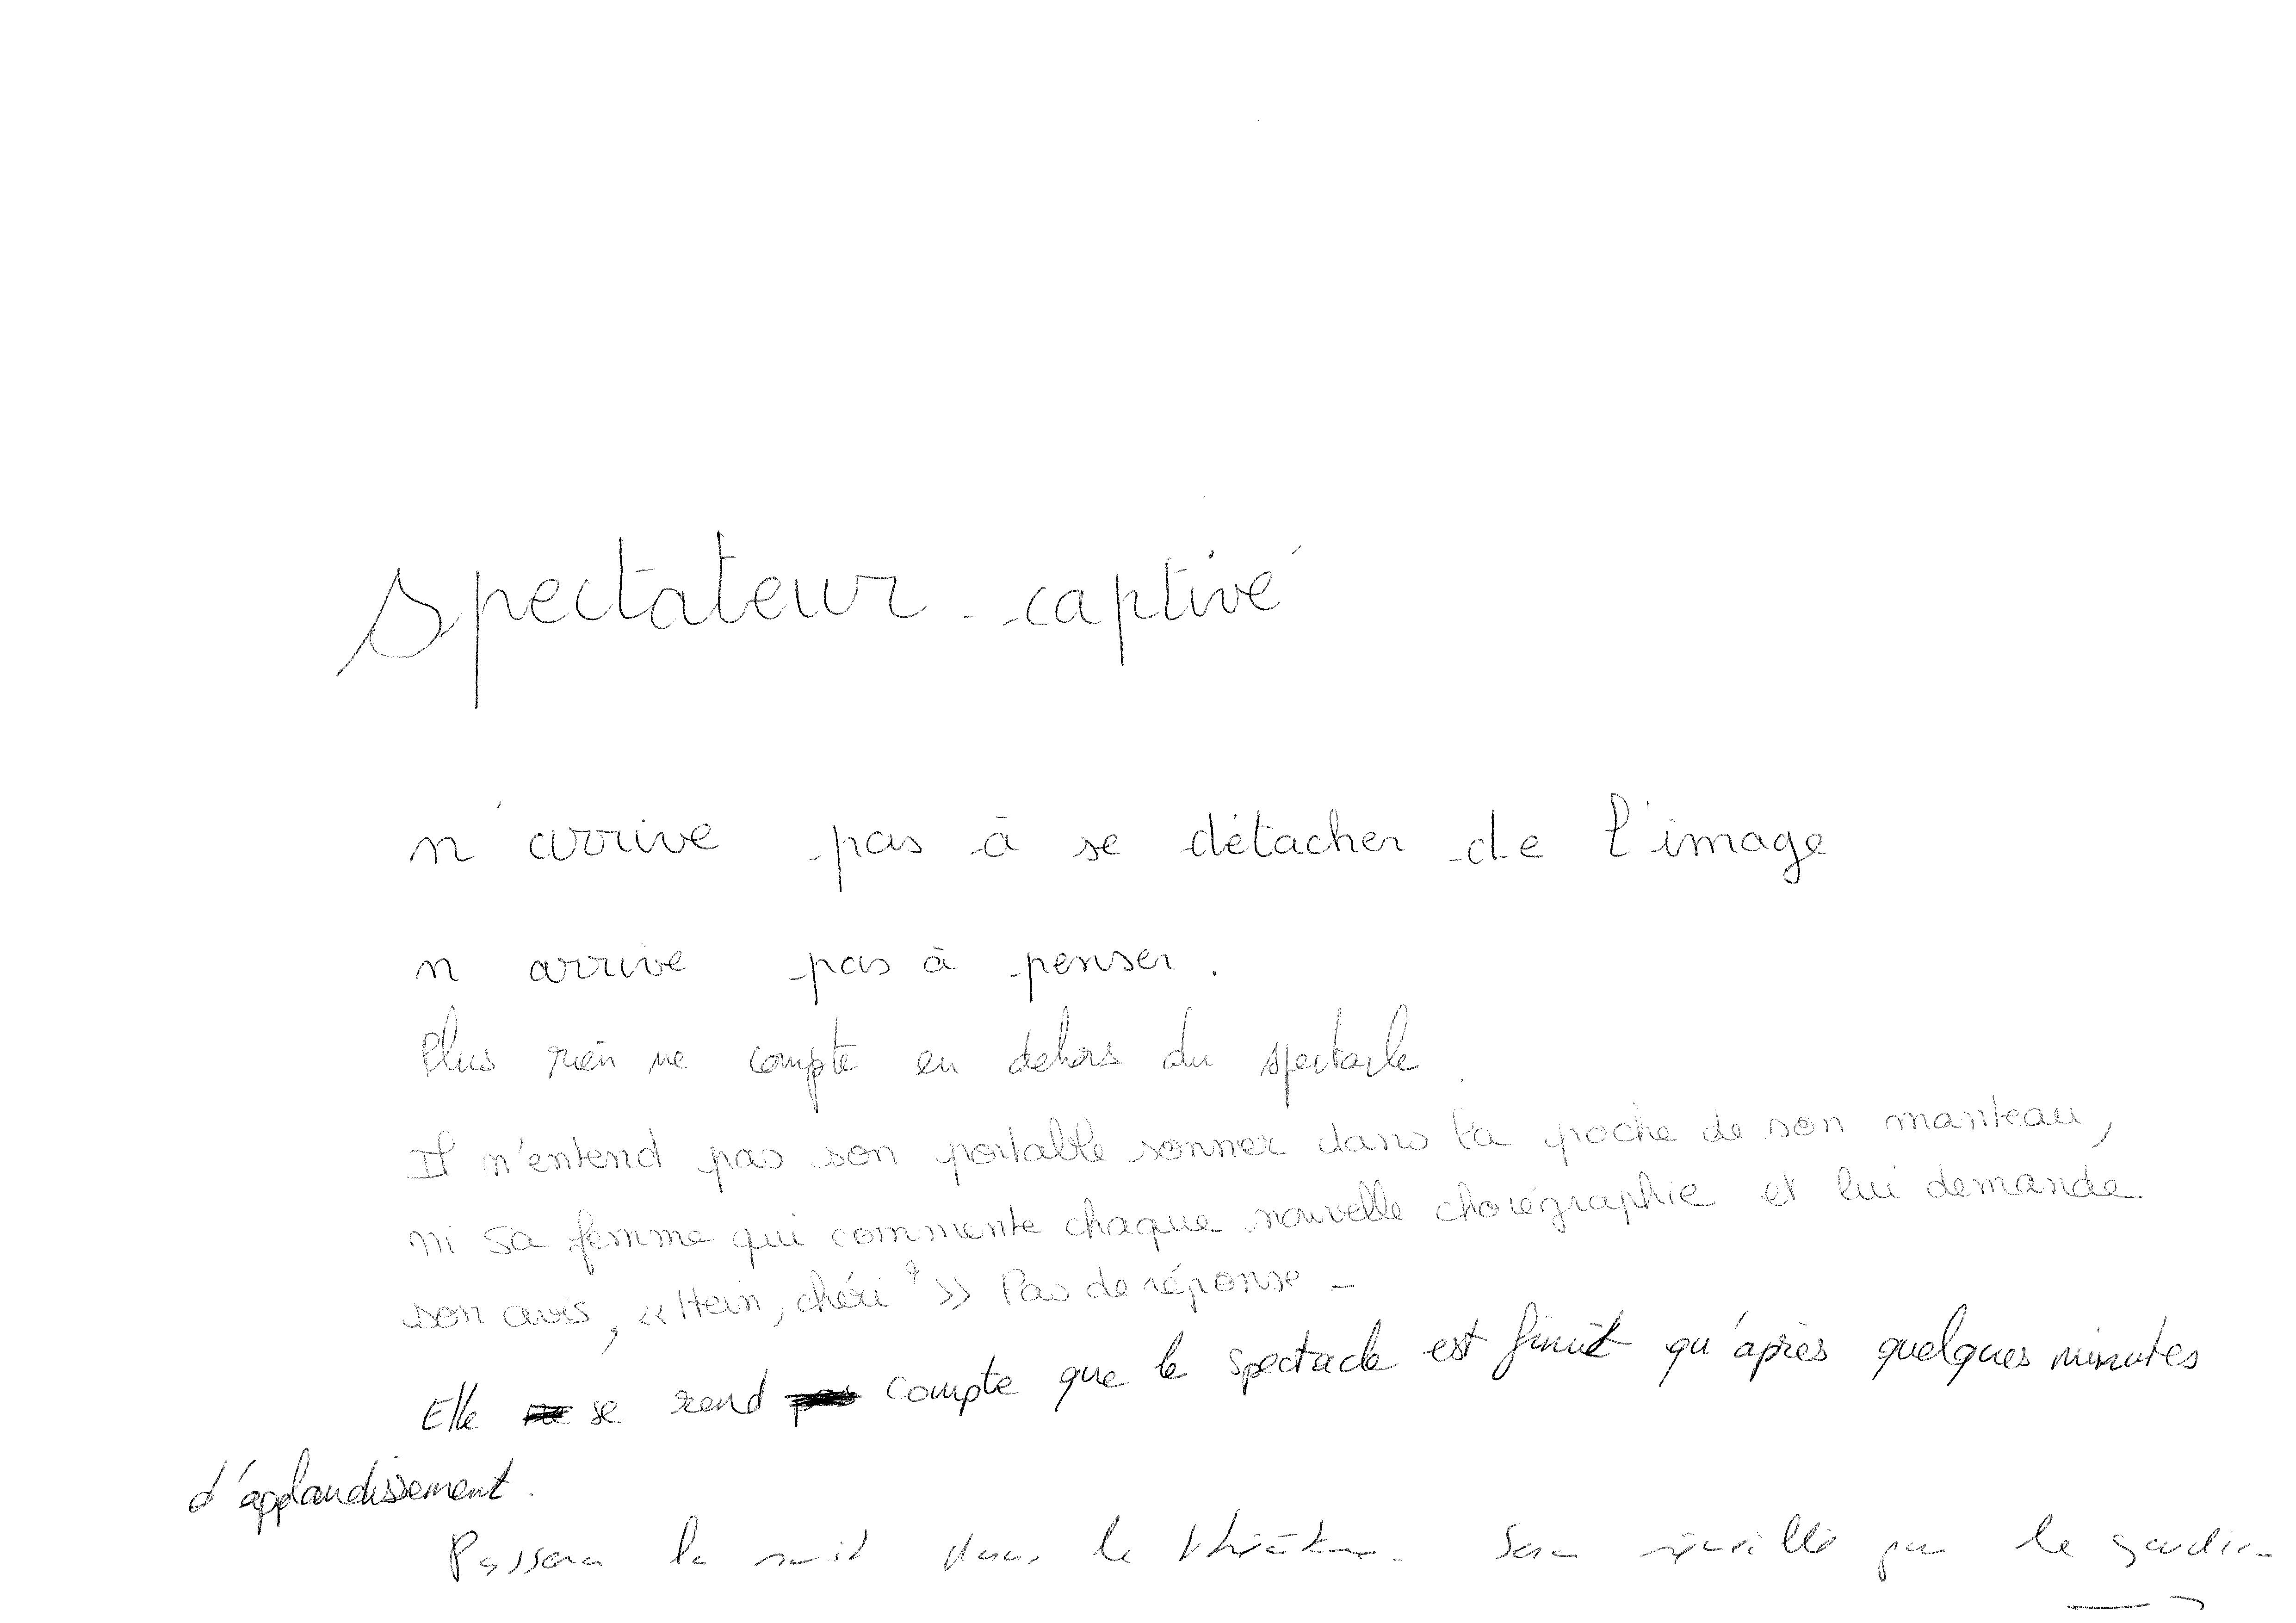 spectateur captivé
n'arrive pas à se détacher de l'image
n arrive pas à penser.
Plus rien ne compte en dehors du spectacle.
Il n'entend pas son portable sonner dans la poche de son manteau,
ni sa femme qui commente chaque nouvelle chorégraphie et lui demande
son avis, «Hein, chéri?» Pas de réponse -
Elle se rend compte que le spectacle est finit qu'après quelques minutes
d'applaudissement.
Passera la nuit dans le théâtre. Sera réveillé par le gardien